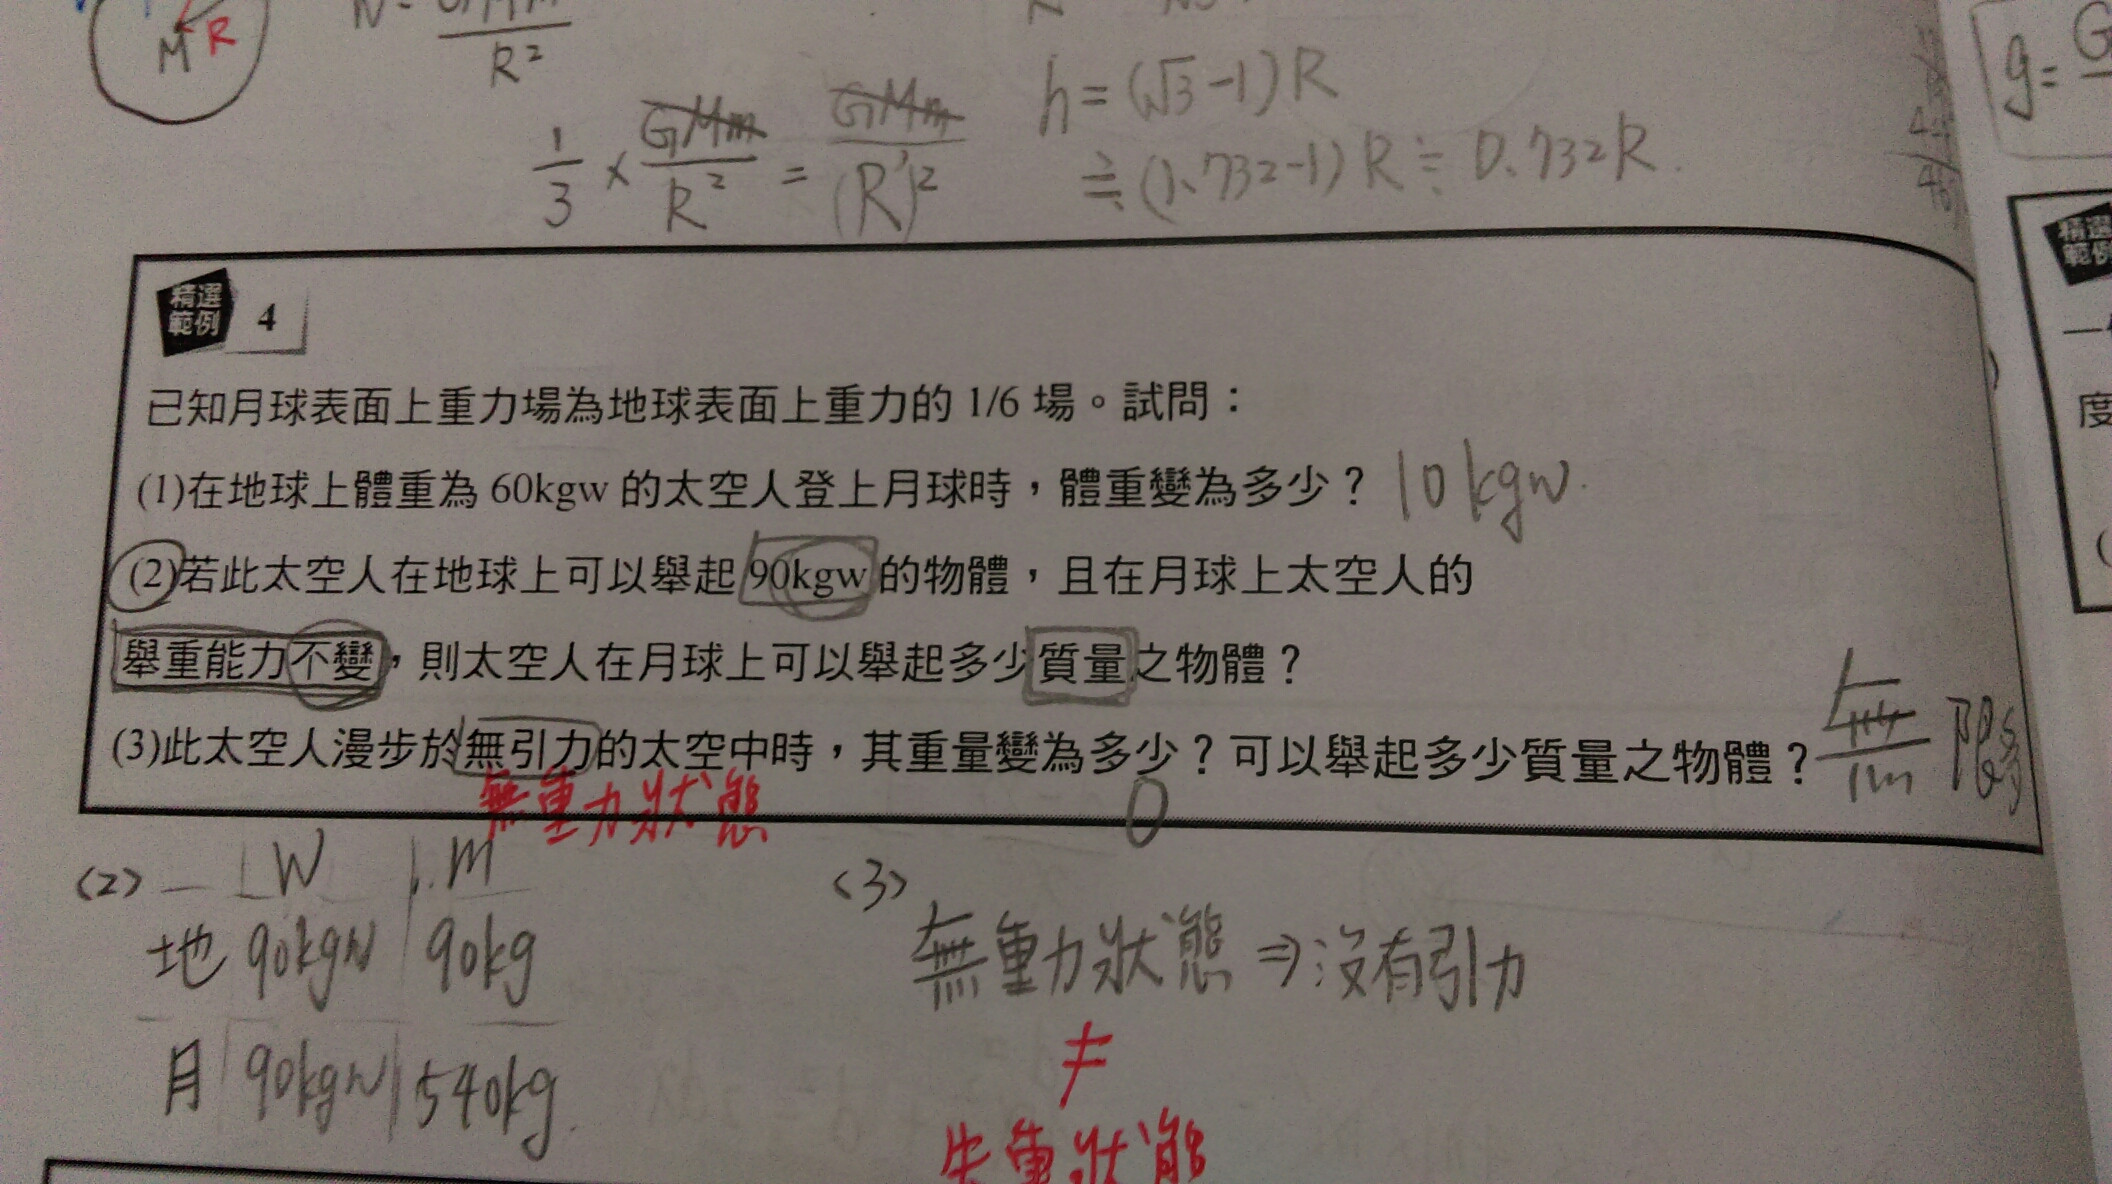 M R
R²
h = (√3-1)R
1/3 × GMm/R² = GMm/(R')²
≒ (1.732-1)R ≒ 0.732R.
g=
精選範例 4
已知月球表面上重力場為地球表面上重力的 1/6 場。試問：
(1)在地球上體重為 60kgw 的太空人登上月球時，體重變為多少？ 10kgw.
(2)若此太空人在地球上可以舉起 90kgw 的物體，且在月球上太空人的
舉重能力不變，則太空人在月球上可以舉起多少質量之物體？
(3)此太空人漫步於無引力的太空中時，其重量變為多少？可以舉起多少質量之物體？ 無限多
無重力狀態
0
(2) W m
地 90kgw 90kg
月 90kgw 540kg.
(3)
無重力狀態 ⇒ 沒有引力
≠
失重狀態
精選
範例
度